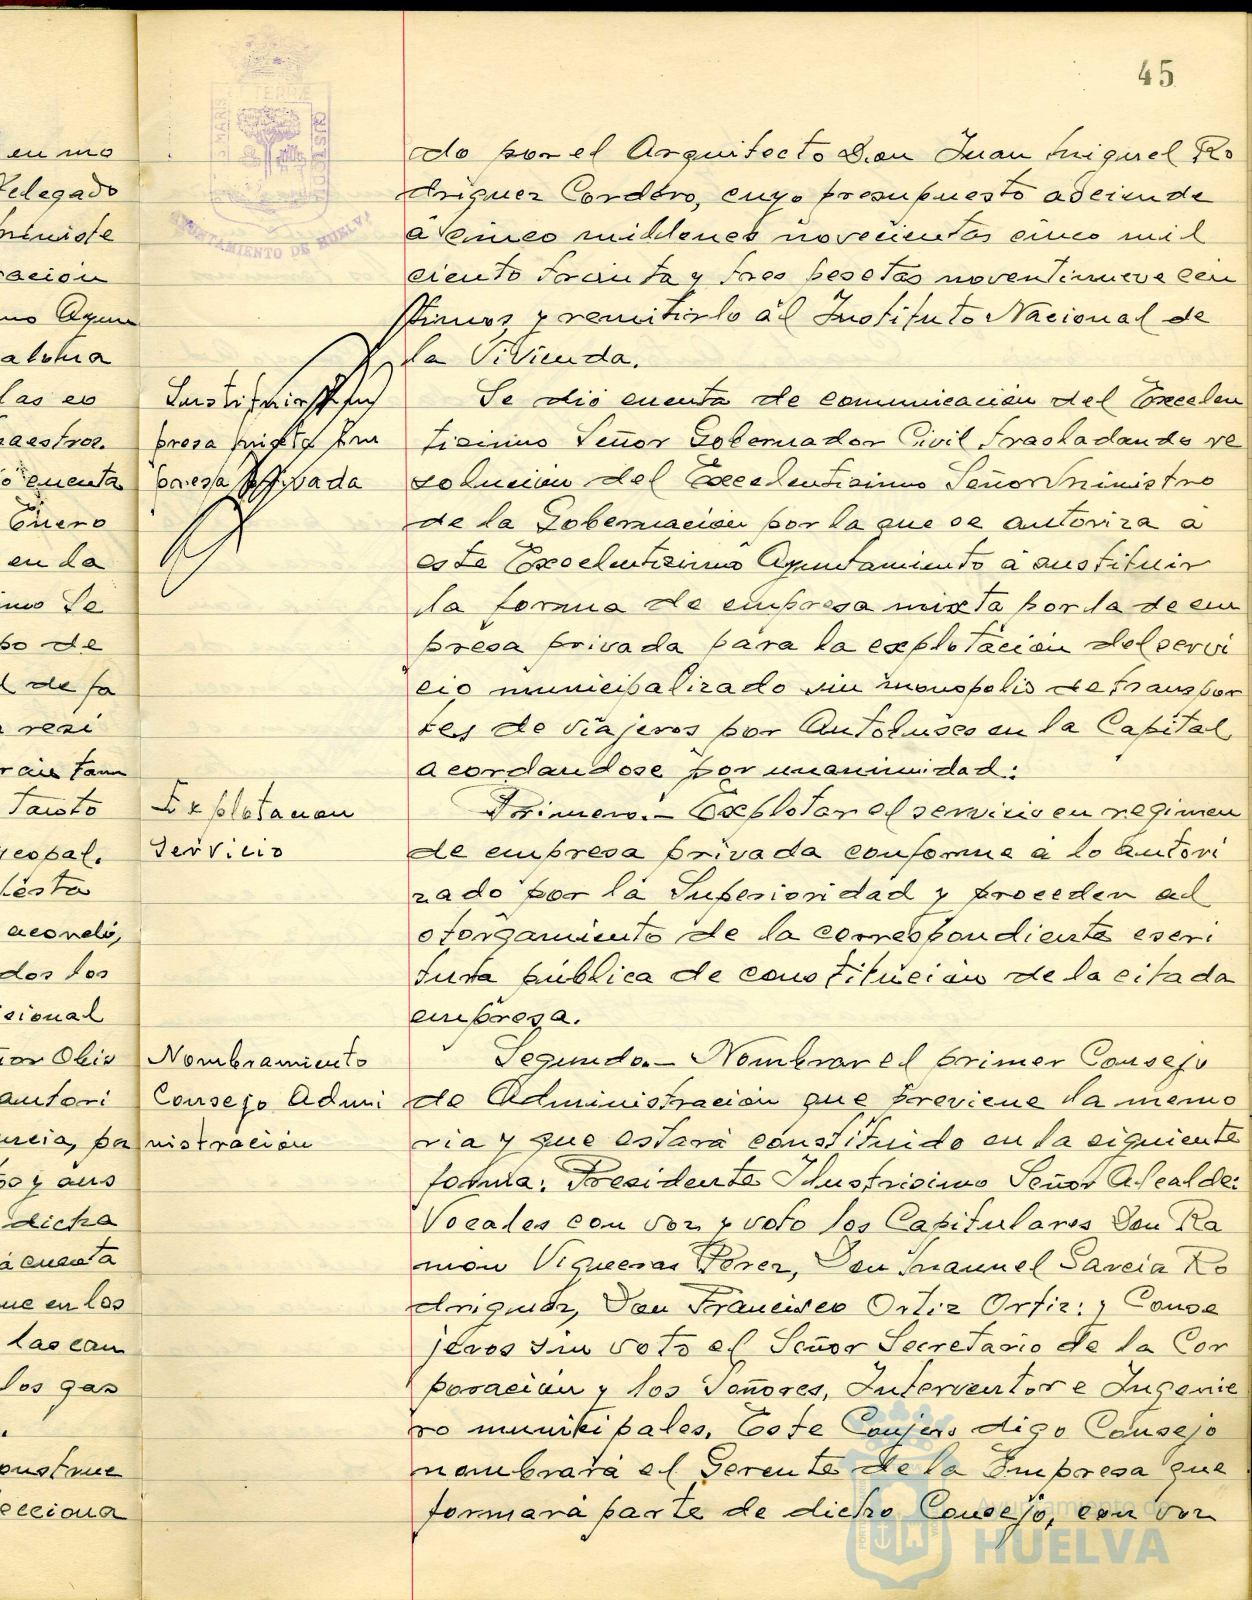 45
PORTUS MARIS ET TERRÆ CUSTODIA
AYUNTAMIENTO DE HUELVA
en mo
Delegado
ministe
ración
mo Ayun
a loma
las es
maestros.
ó cuenta
Enero
en la
imo Se
po de
l de fa
resi
Tanto
acordó,
dos los
isional
ñor Obis
autori
ncia, pa
so y aus
dicha
á cuenta
que en los
las can
los gas
onstrue
ecciona
Sustituir Em
presa mixta Em
presa Privada
Explotacion
Servicio
Nombramiento
Consejo Admi
nistración
do por el Arquitecto Don Juan Miguel Ro
driguez Cordero, cuyo presupuesto asciende
á cinco millones novecientas cinco mil
ciento treinta y tres pesetas noventinueve cén
timos, y remitirlo al Instituto Nacional de
la Vivienda.
Se dió cuenta de comunicación del Excelen
tisimo Señor Gobernador Civil trasladando re
solución del Excelentisimo Señor Ministro
de la Gobernación por la que se autoriza á
este Excelentisimo Ayuntamiento á sustituir
la forma de empresa mixta por la de em
presa privada para la explotación del servi
cio municipalizado sin monopolio de transpor
tes de viajeros por Autobuses en la Capital,
acordandose por unanimidad:
Primero.- Explotar el servicio en regimen
de empresa privada conforme á lo autori
zado por la Superioridad y proceder al
otorgamiento de la correspondiente escri
tura pública de constitución de la citada
empresa.
Segundo.- Nombrar el primer Consejo
de Administración que previene la memo
ria y que estará constituido en la siguiente
forma: Presidente Ilustrisimo Señor Alcalde:
Vocales con voz y voto los Capitulares Don Ra
món Vigueras Perez, Don Manuel Garcia Ro
driguez, Don Francisco Ortiz Ortiz: y Conse
jeros sin voto el Señor Secretario de la Cor
poración y los Señores, Interventor e Ingenie
ro municipales. Este Conjero digo Consejo
nombrará el Gerente de la Empresa que
formará parte de dicho Consejo, con voz
Ayuntamiento de
HUELVA